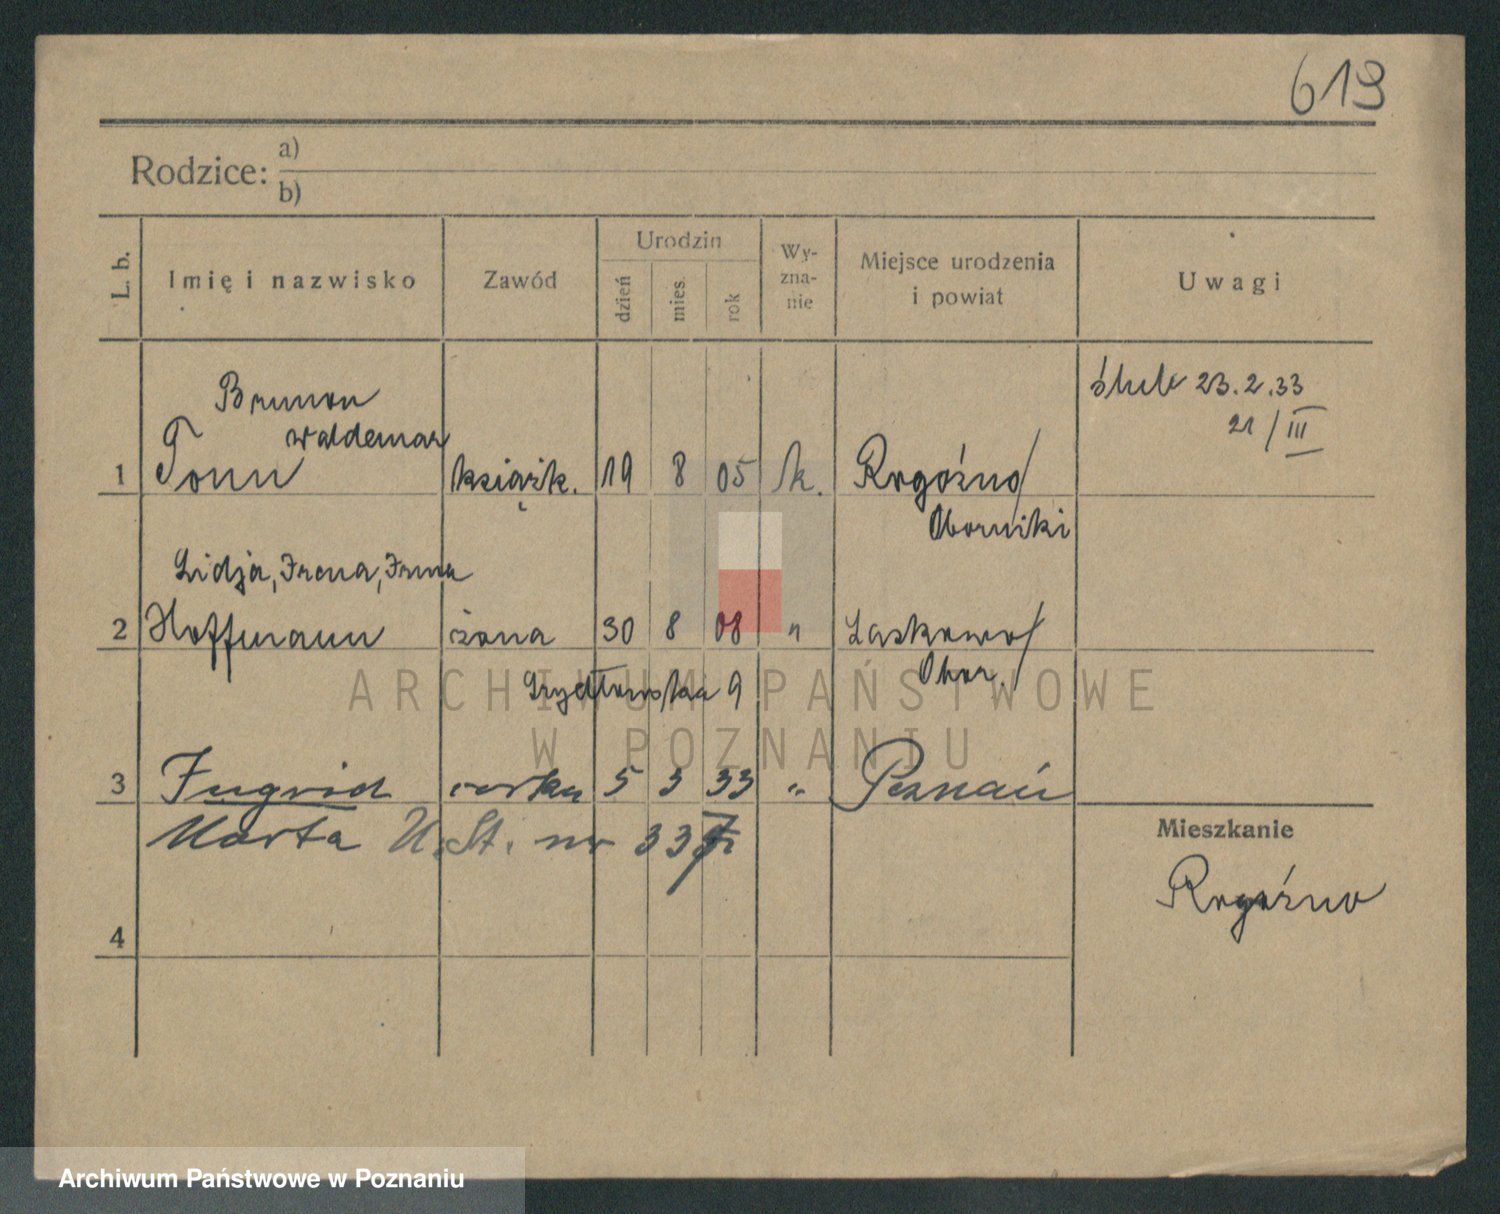 619
Rodzice: a)
b)
L. b. Imię i nazwisko Zawód Urodzin dzień mies. rok Wy-zna-nie Miejsce urodzenia i powiat Uwagi
ślub 23.2.33
21/III
Brunon
Waldemar
1 Tonn książk. 19 8 05 k. Rogoźno/
Oborniki
Lidja, Irena, Irma
2 Hoffmann żona 30 8 08 " Laskowo/
Obor.
9
ARCHIWUM PAŃSTWOWE
W POZNANIU
3 Ingrid córka 5 3 33 " Poznań
Marta U. St. nr
Mieszkanie
Rogoźno
4
Archiwum Państwowe w Poznaniu